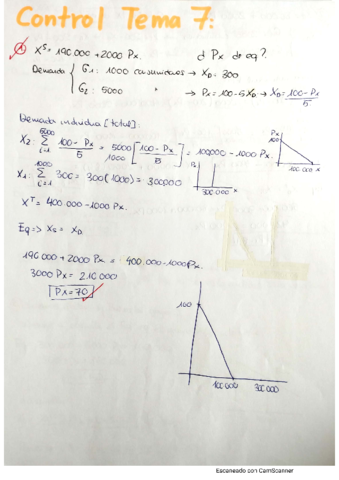 Control Tema 7:
A Xˢ = 190000 + 2000 Px. d Px de eq?
Demanda { G1: 1000 consumidores → XD = 300
G2: 5000 " → Px = 100 - 5XD → XD = 100 - Px / 5
Demanda individua [total].
X2: 5000 Σ i=1 100 - Px / 5 = 5000 [100 - Px / 5] = 100000 - 1000 Px.
X1: 1000 Σ i=1 300 = 300 (1000) = 300000
Px
100
100000 x
300.000 x
Xᵀ = 400.000 - 1000 Px.
Eq => Xs = XD
190000 + 2000 Px = 400.000 - 1000 Px.
3000 Px = 210000
Px = 70
100
100000 300000
Escaneado con CamScanner